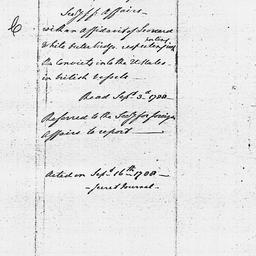 Secy f. Affairs
with an Affidavit of Leonard
White Outerbridge respecting
entering
the Convicts into the U States
in british Vessels —
Read Sept. 3d 1788 —
Referred to the Secy for foreign
Affairs to report —
Acted on Sept. 16th 1788 —
— Secret Journal —